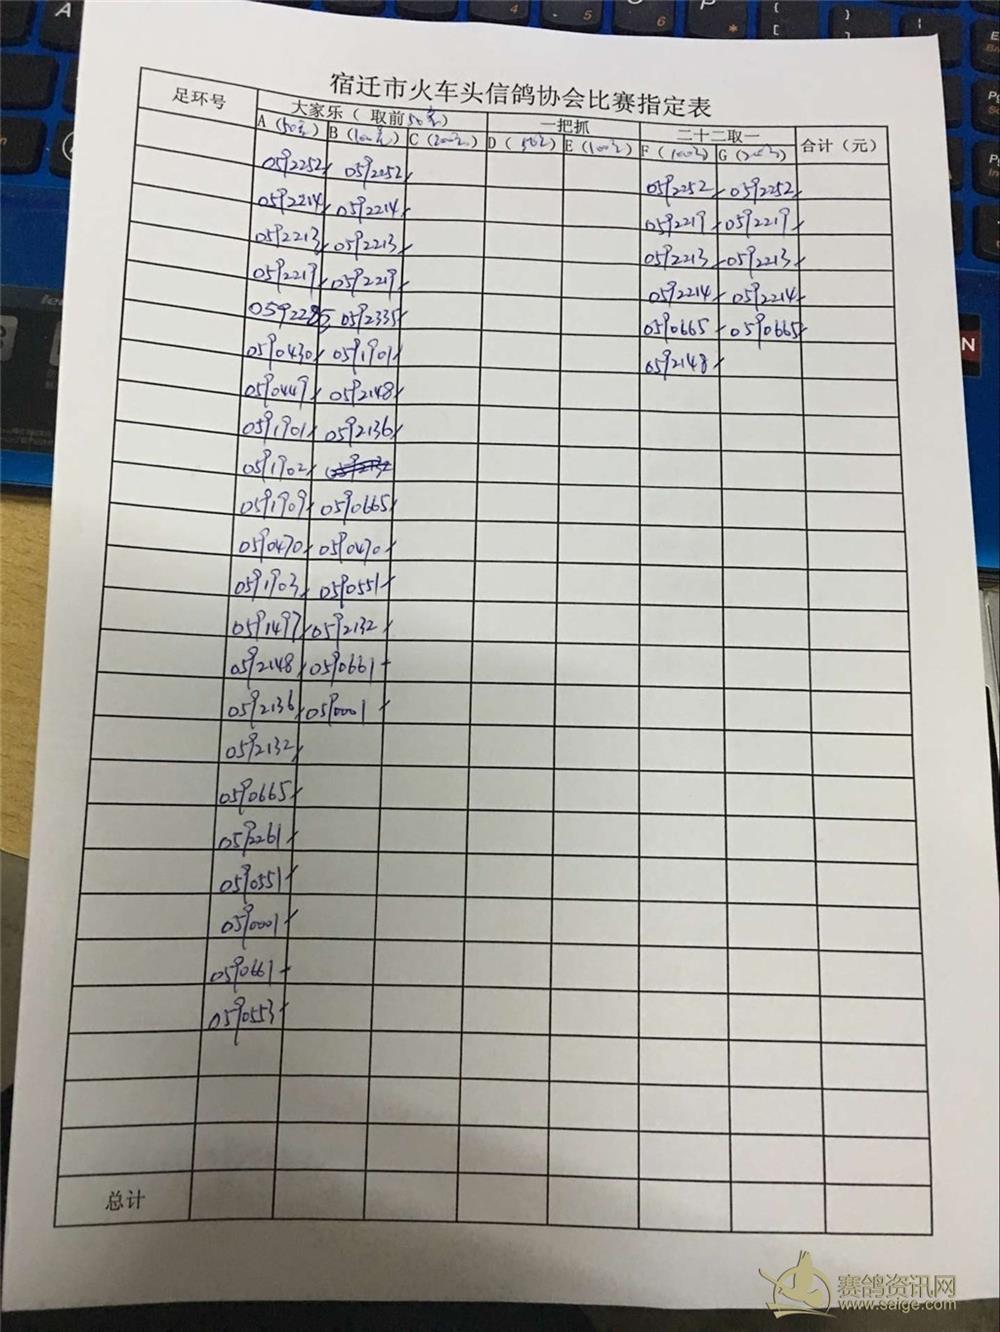 宿迁市火车头信鸽协会比赛指定表
足环号 大家乐（ 取前50名） 一把抓 二十二取一 合计（元）
A（50元） B（100元） C（200元） D（50元） E（100元） F（100元） G（200元）
0592252 0592252 0592252 0592252
0592214 0592214 0592219 0592219
0592213 0592213 0592213 0592213
0592219 0592219 0592214 0592214
0592335 0590665 0590665
0590430 0591901 0592148
0590449 0592148
0591901 0592136
0591902
0591909 0590665
0590470 0590470
0591903 0590551
0591497 0592132
0592148 0590661
0592136 0590001
0592132
0590665
0592261
0590551
0590001
0590661
0590553
总计
赛鸽资讯网
www.saige.com